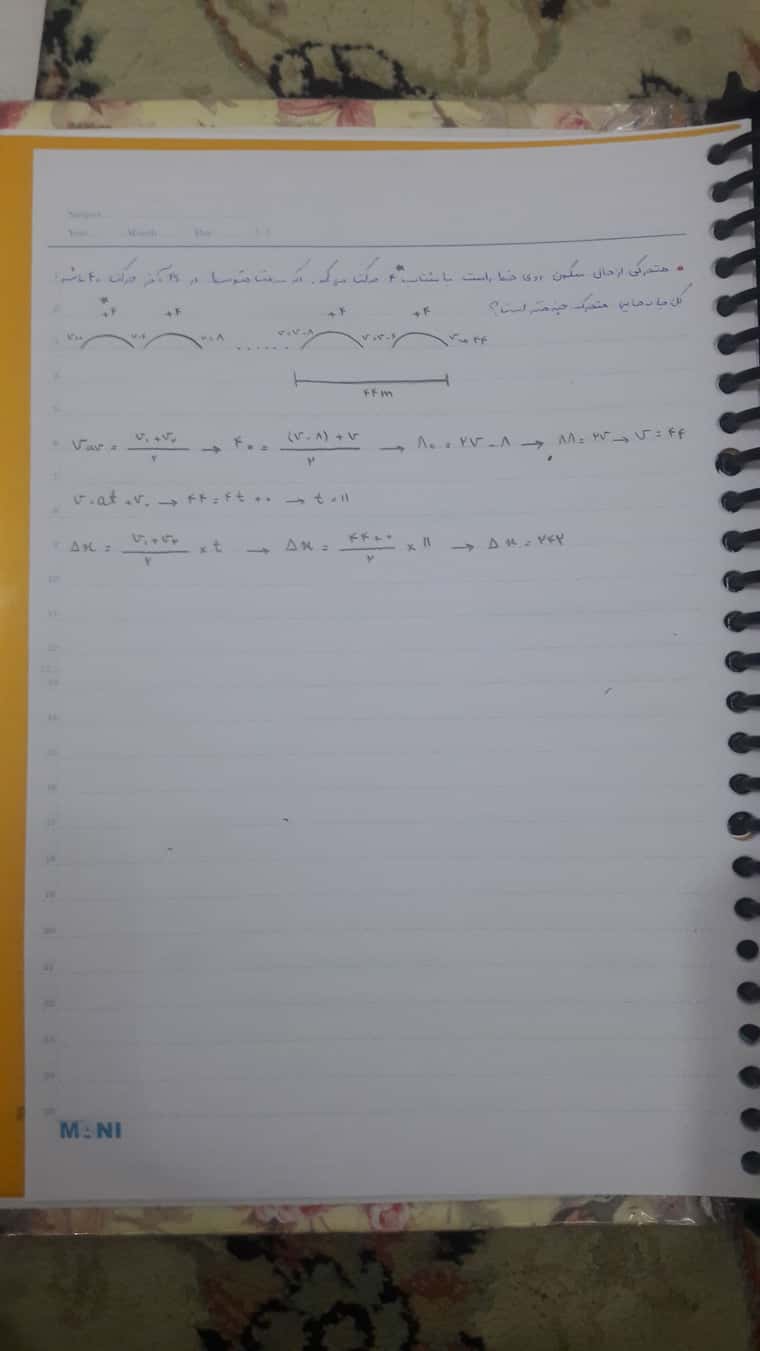 Subject
Year Month Day
• متحرکی از حال سکون روی خط راست با شتاب ۴ حرکت می‌کند. اگر سرعت متوسط در ۲s آخر حرکت ۴۰ باشد
کل جابجایی متحرک چند متر است؟
+۴ +۴ +۴ +۴
v=۰ v=۴ v=۸ ...... v=v-۸ v=v-۴ v=۴۴
۴۴m
Vav = (v₁+v₂)/۲ → ۴۰ = ((v-۸)+v)/۲ → ۸۰ = ۲v-۸ → ۸۸=۲v → v=۴۴
v=at+v. → ۴۴=۴t+۰ → t=۱۱
Δx = (v₁+v₂)/۲ × t → Δx = (۴۴+۰)/۲ × ۱۱ → Δx=۲۴۲
MANI